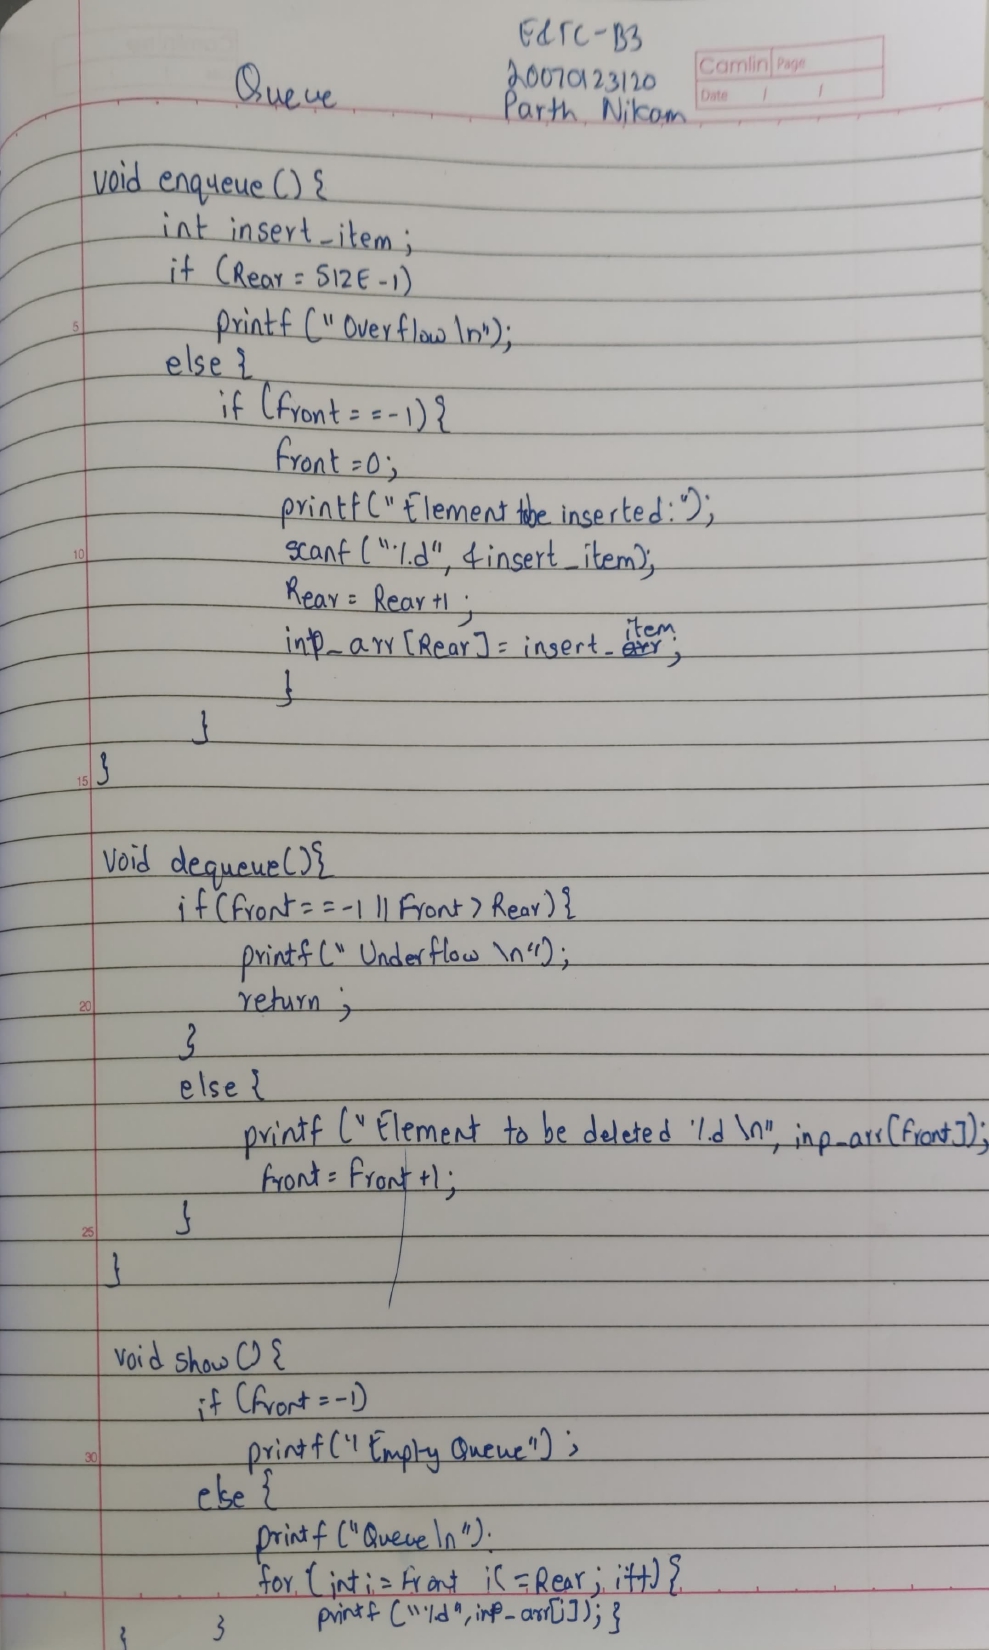 EdTC-B3
Camlin Page
Date / /
20070123120
Queue
Parth Nikam
void enqueue () {
int insert_item ;
if (Rear = SIZE -1)
5
printf (" Overflow \n");
else {
if (front = = -1) {
front = 0;
printf (" Element to be inserted: ");
10
scanf ("%d", &insert_item);
Rear = Rear +1 ;
inp_arr [Rear] = insert_item ;
}
}
15
}
void dequeue () {
if (front = = -1 || Front > Rear) {
printf (" Underflow \n");
20
return ;
}
else {
printf (" Element to be deleted %d \n", inp_arr [front]);
front = front +1;
25
}
}
void show () {
if (front = -1)
30
printf (" Empty Queue") ;
else {
printf ("Queue \n").
for (int i = Front i < = Rear ; i++) {
printf ("%d", inp_arr[i]); }
}
}